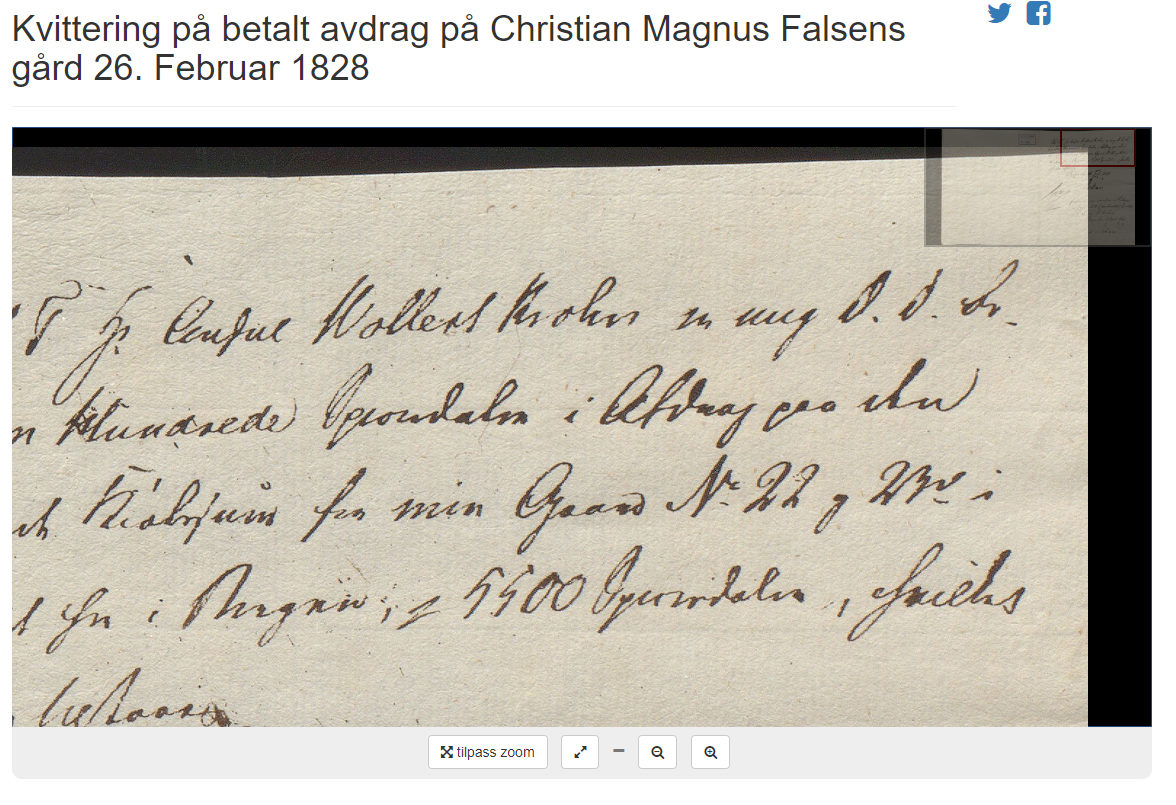 Kvittering på betalt avdrag på Christian Magnus Falsens
gård 26. Februar 1828
Hr Consul Wollert Krohn D. D. be-
Hundrede Speciedaler i Afdrag paa den
Kiøbesum for min Gaard No 22 og 23de i
her i Bergen, 5500 Speciedaler, hvilket
tilpass zoom